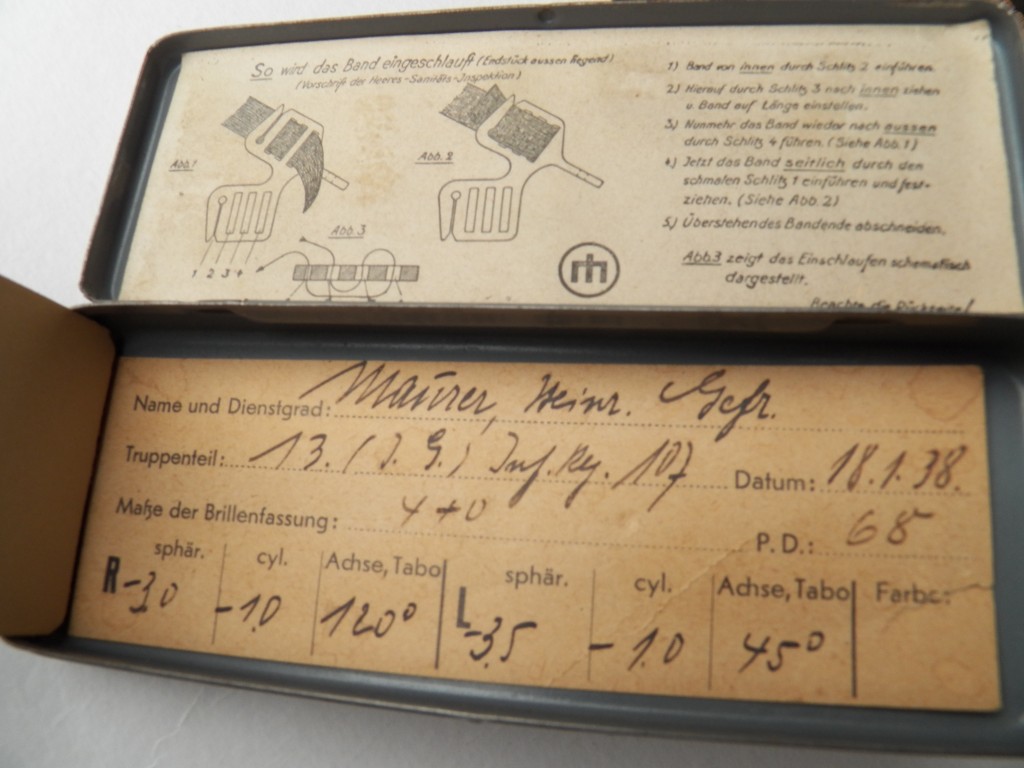 So wird das Band eingeschlauft (Endstück aussen liegend)
(Vorschrift der Heeres-Sanitäts-Inspektion)
Abb.1
Abb.2
Abb.3
1 2 3 4
1) Band von innen durch Schlitz 2 einführen.
2) Hierauf durch Schlitz 3 nach innen ziehen
u. Band auf Länge einstellen.
3) Nunmehr das Band wieder nach aussen
durch Schlitz 4 führen. (Siehe Abb. 1)
4) Jetzt das Band seitlich durch den
schmalen Schlitz 1 einführen und fest-
ziehen. (Siehe Abb. 2)
5) Überstehendes Bandende abschneiden.
Abb3 zeigt das Einschlaufen schematisch
dargestellt.
Beachte die Rückseite!
Name und Dienstgrad: Maurer, Heinr. Gefr.
Truppenteil: 13. (J. G.) Inf. Rg. 107 Datum: 18.1.38.
Maße der Brillenfassung: P.D.: 68
sphär. cyl. Achse, Tabo sphär. cyl. Achse, Tabo Farbe:
R -3.0 -1.0 120° L -3.5 -1.0 45°